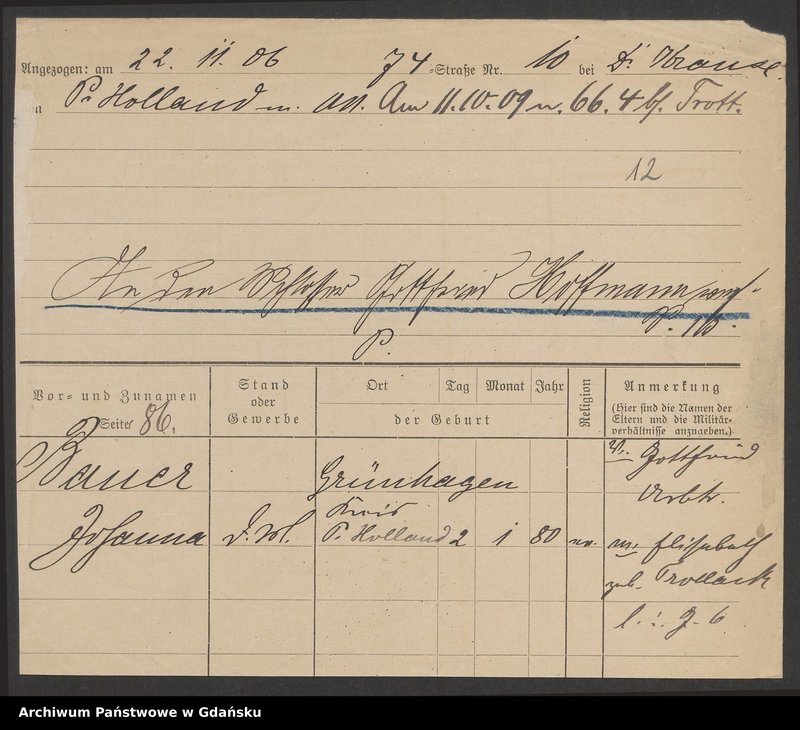 Angezogen: am 22. 11. 06 74-Straße Nr. 10 bei Dr Krause.
Pr Holland Am 11.10.09 n. 66. 4 bf. Trott.
12
An den Schlosser Gottfried Hoffmann
P.
Vor- und Zunamen
Seite 86.
Stand
oder
Gewerbe
Ort Tag Monat Jahr
der Geburt
Religion
Anmerkung
(Hier sind die Namen der
Eltern und die Militär-
verhältnisse anzugeben.)
Bauer Grünhagen V. Gottfried
Kreis Arbtr.
Johanna D. M. Pr. Holland 2 1 80 ev. M. Elisabeth
geb.
Archiwum Państwowe w Gdańsku